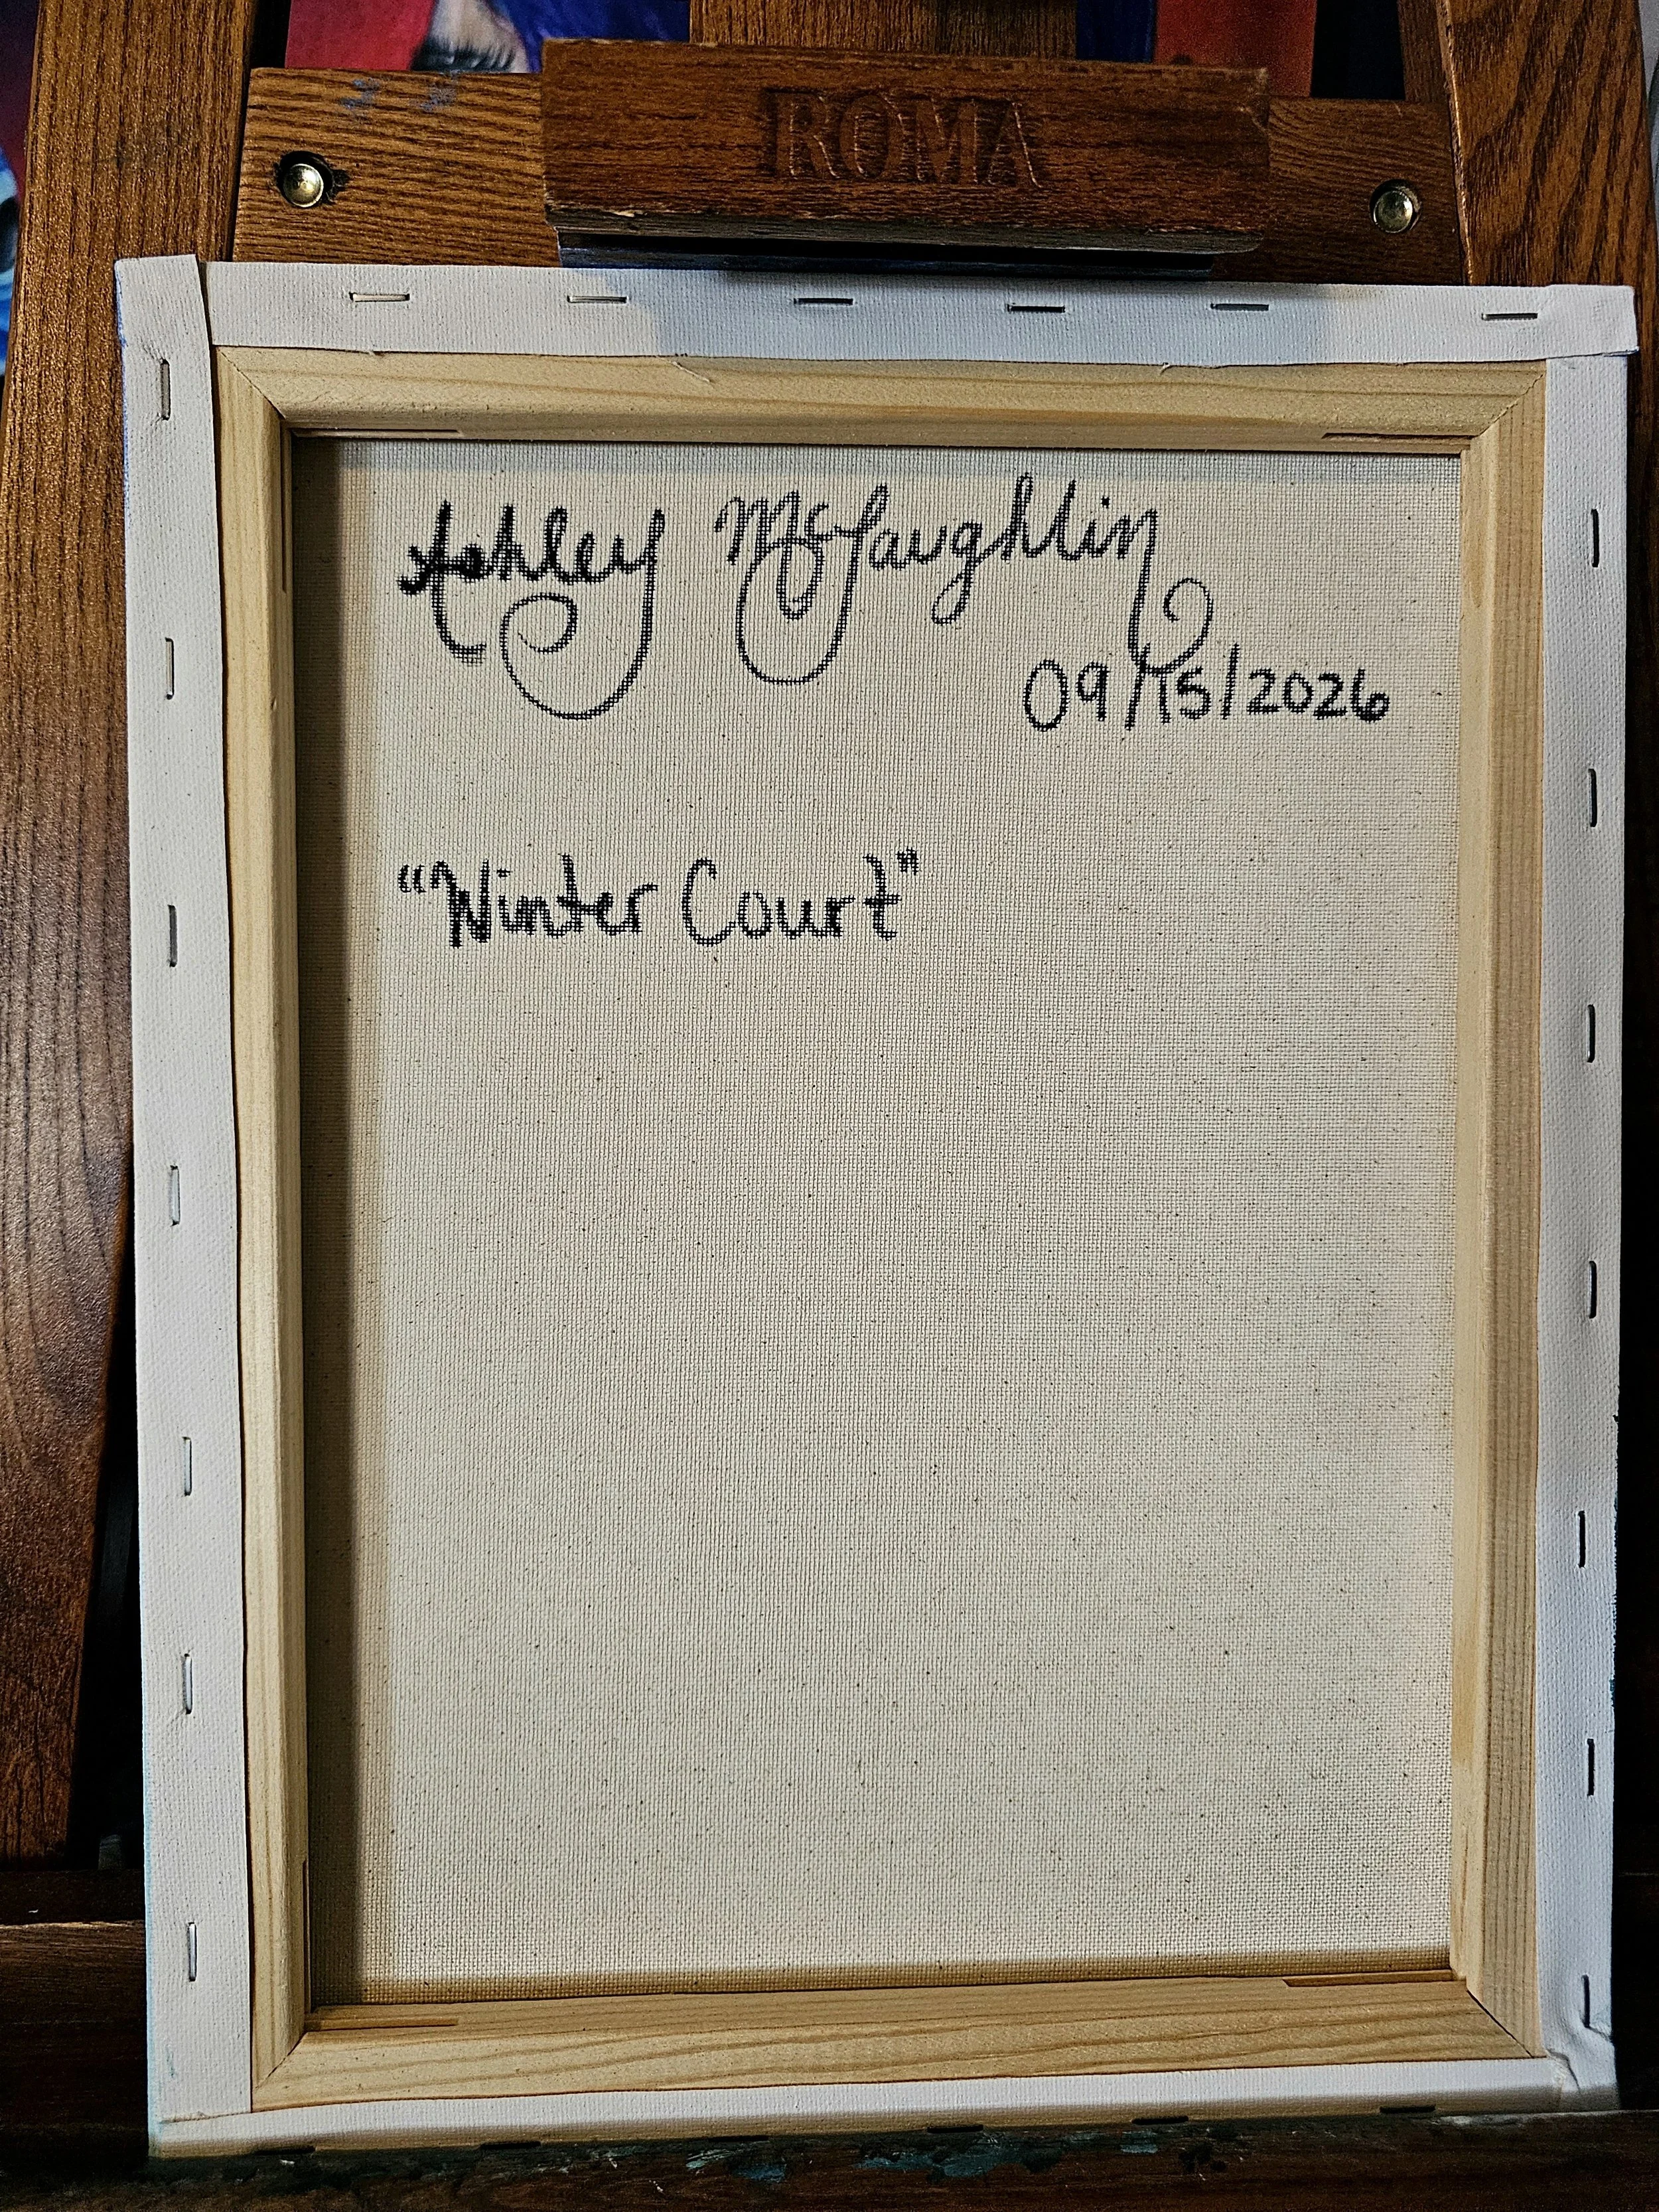 ROMA
Ashley McLaughlin
09/15/2026
“Winter Court”